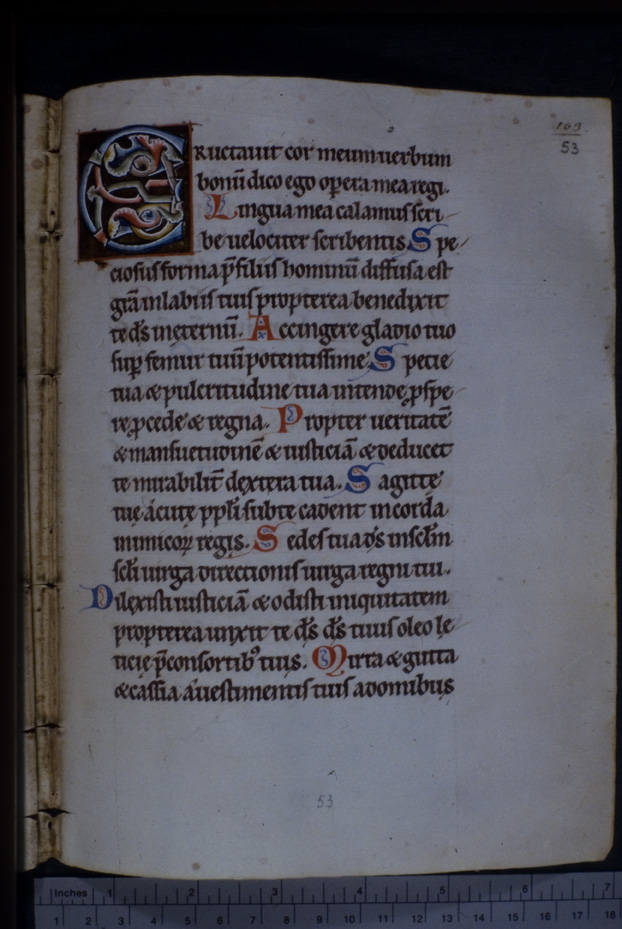 103
53
Eructauit cor meum uerbum
bonū dico ego opera mea regi.
Lingua mea calamus scri
be uelociter scribentis. Spe
ciosus forma p̄ filiis hominū diffusa est
grā in labiis tuis propterea benedixit
te ds̄ in eternū. Accingere gladio tuo
suꝑ femur tuū potentissime. Specie
tua & pulcritudine tua intende ꝓspe
re ꝓcede & regna. Propter ueritatē
& mansuetudinē & iusticiā & deducet
te mirabilit̄ dextera tua. Sagitte
tuę acutę ppl̄i sub te cadent in corda
inimicoꝝ regis. Sedes tua ds̄ in sclm̄
scl̄i uirga directionis uirga regni tui.
Dilexisti iusticiā & odisti iniquitatem
propterea unxit te ds̄ ds̄ tuus oleo le
ticię p̄ consortibꝰ tuis. Mirra & gutta
& cassia a uestimentis tuis a domibus
53
Inches 1 2 3 4 5 6 7
1 2 3 4 5 6 7 8 9 10 11 12 13 14 15 16 17 18